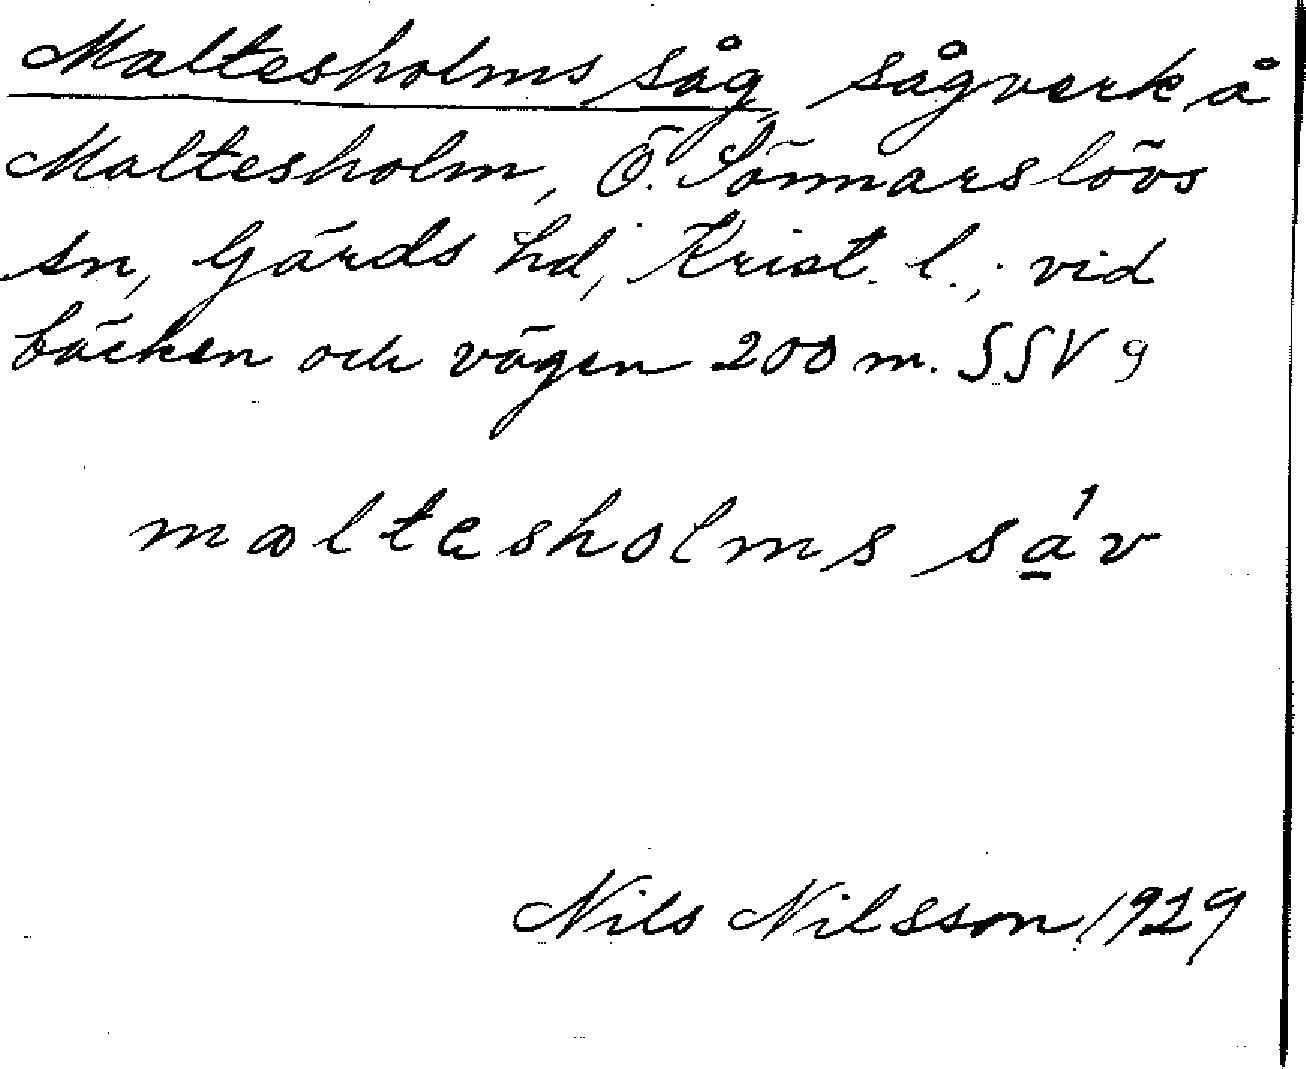 Maltesholms såg, sågverk å
Maltesholm, Ö. Sönnarslövs
sn, Gärds hd, Krist. l.; vid
bäcken och vägen 200 m. SSV 9
maltesholms sá̱v
Nils Nilsson 1929